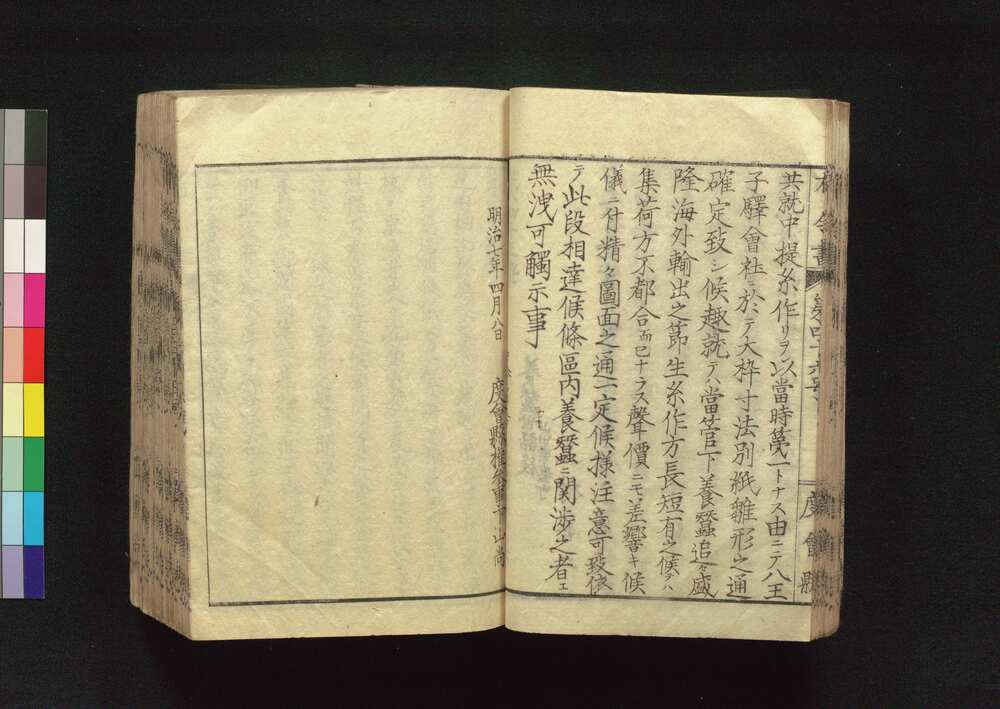 共就中提糸作リヲ以當時第一トナス由ニテ八王
子驛會社ニ於テ大枠寸法別紙雛形之通
確定致シ候趣就テハ當管下養蠶追々盛
隆海外輸出之節生糸作方長短有之候テハ
集荷方不都合而已ナラス聲價ニモ差響キ候
儀ニ付精々圖面之通一定候様注意可致依
テ此段相達候條區内養蠶ニ関渉之者エ
無洩可觸示事
明治七年四月八日
度會縣權参事下山尚
度會縣